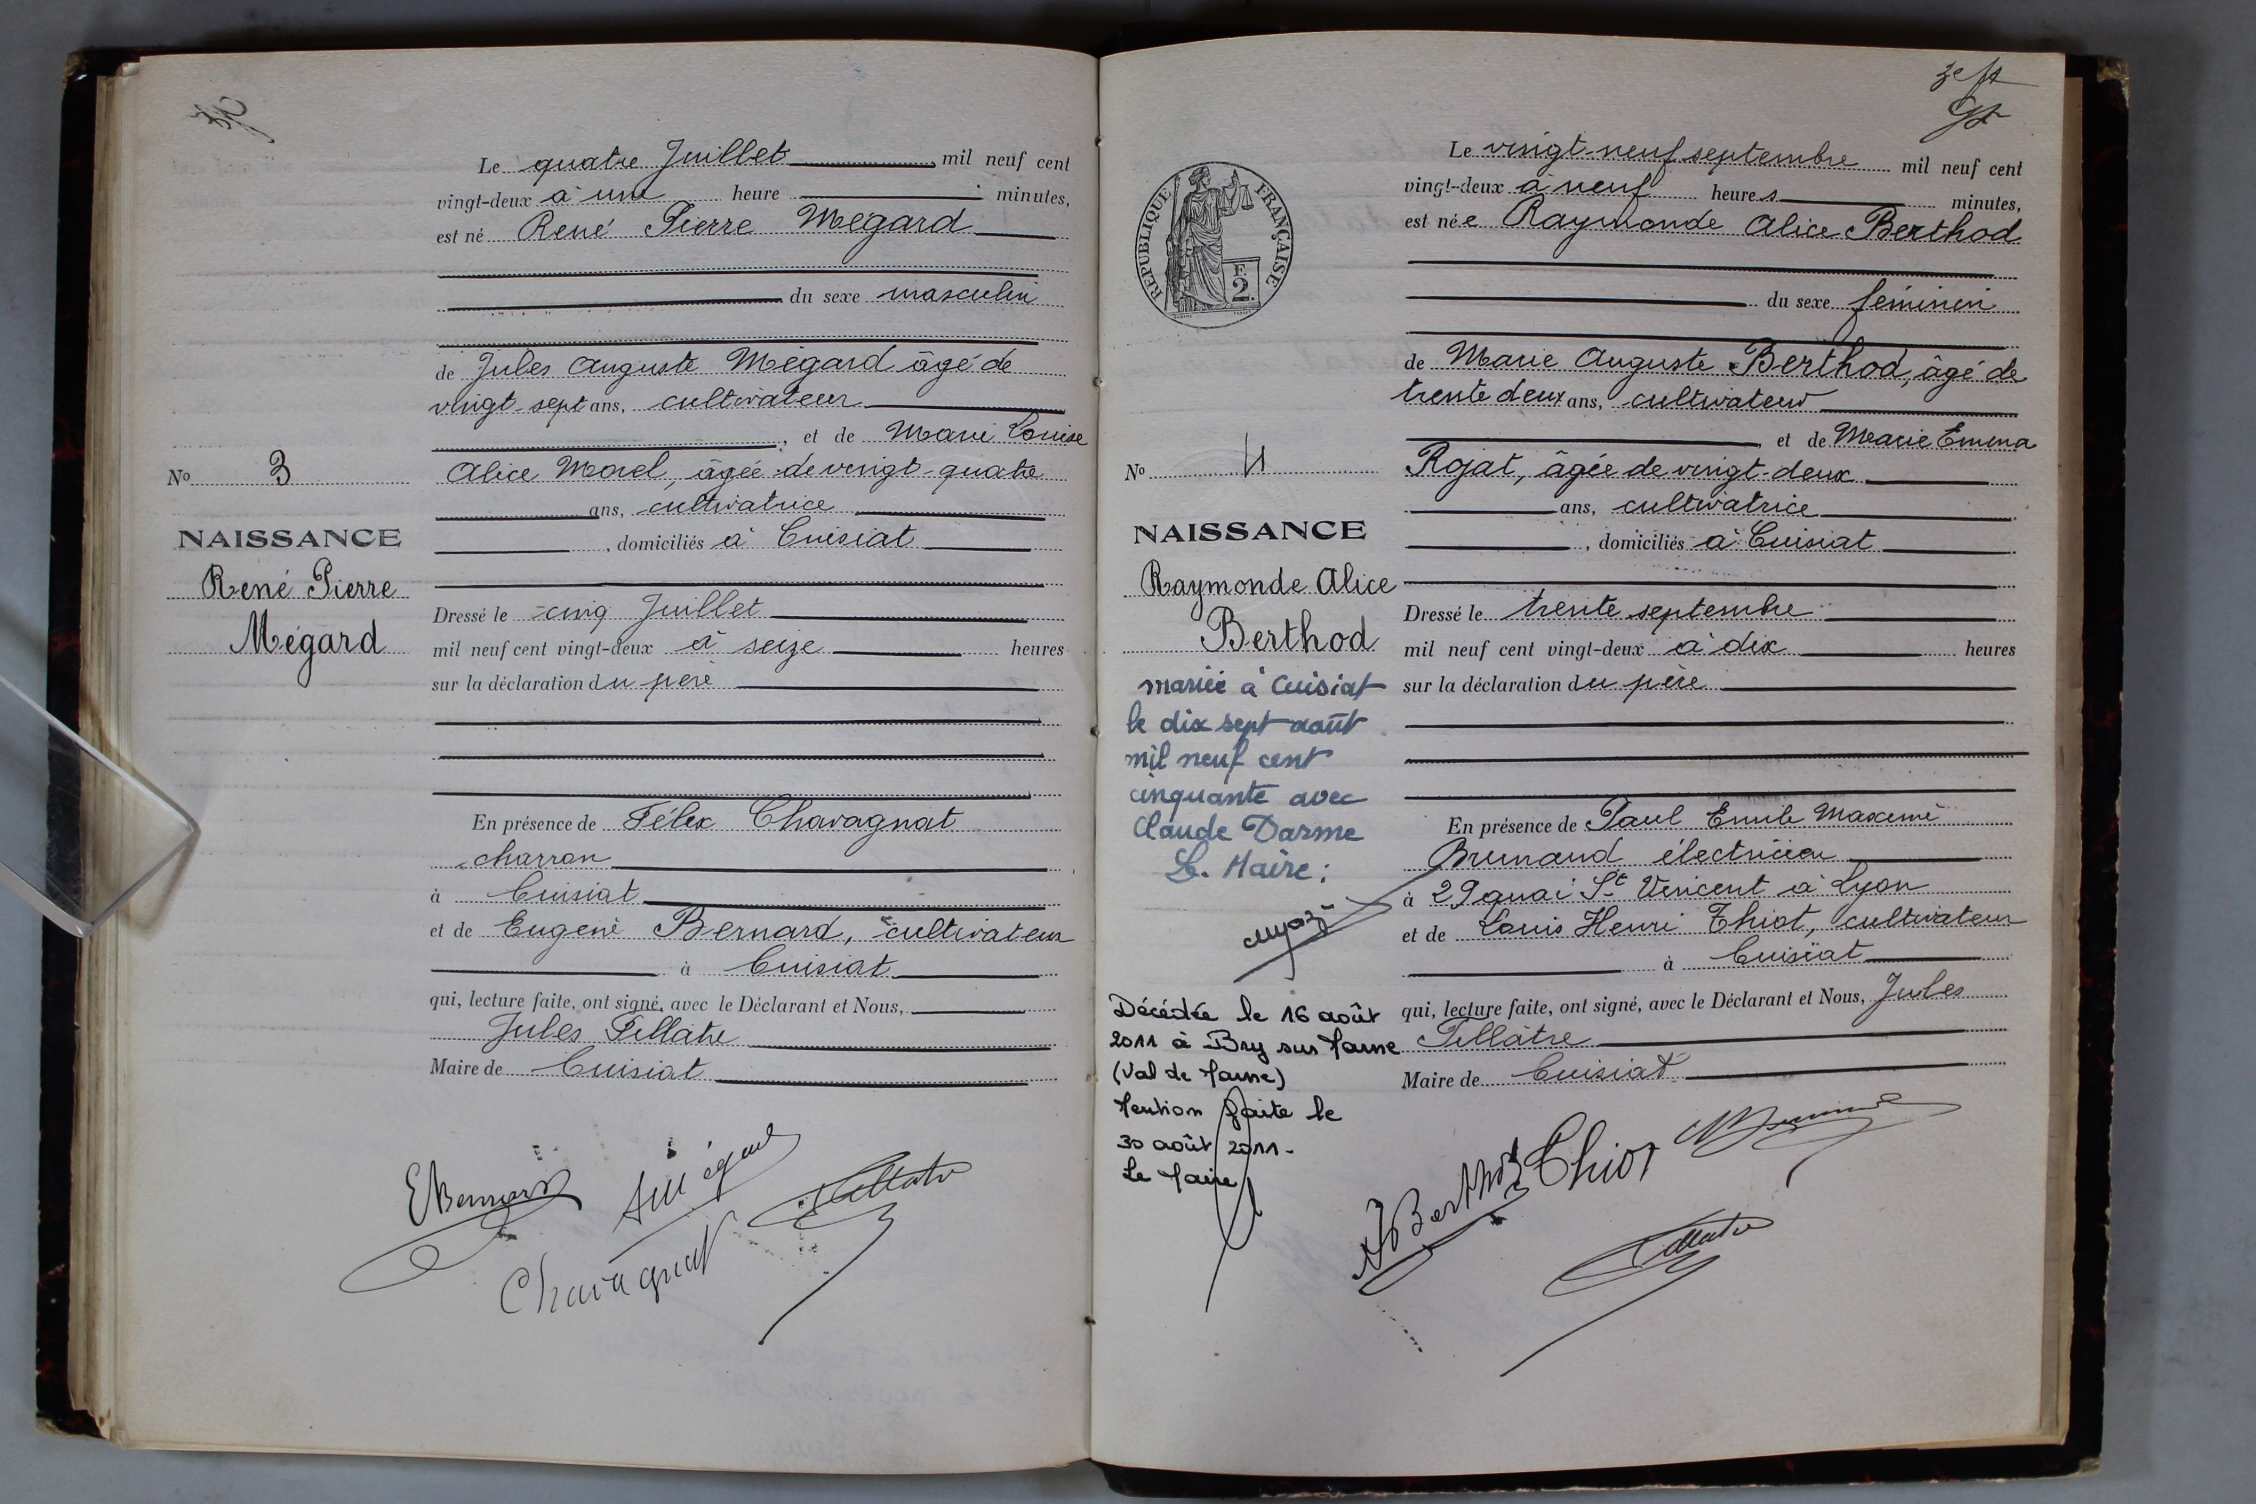 Le quatre Juillet mil neuf cent
vingt-deux à une heure minutes,
est né René Pierre Mégard
du sexe masculin
de Jules Auguste Mégard âgé de
vingt sept ans, cultivateur
, et de Marie Louise
Alice Morel, âgée de vingt-quatre
ans, cultivatrice
, domiciliés à Cuisiat
No 3
NAISSANCE
René Pierre
Mégard
Dressé le cinq Juillet
mil neuf cent vingt-deux à seize heures
sur la déclaration du père
En présence de Félix Chavagnat
charron
à Cuisiat
et de Eugène Bernard, cultivateur
à Cuisiat
qui, lecture faite, ont signé, avec le Déclarant et Nous,
Jules Pillatre
Maire de Cuisiat
EBernard
Chavagnat
RÉPUBLIQUE FRANÇAISE
F.
2.
Le vingt-neuf septembre mil neuf cent
vingt-deux à neuf heures minutes,
est née Raymonde Alice Berthod
du sexe féminin
de Marie Auguste Berthod, âgé de
trente deux ans, cultivateur
, et de Marie Emma
Rojat, âgée de vingt-deux
ans, cultivatrice
, domiciliés à Cuisiat
No 4
NAISSANCE
Raymonde Alice
Berthod
mariée à Cuisiat
le dix sept août
mil neuf cent
cinquante avec
Claude Darme
Le Maire :
Décédée le 16 août
2011 à Bry sur Marne
(Val de Marne)
Mention faite le
30 août 2011.
Le Maire
Dressé le trente septembre
mil neuf cent vingt-deux à dix heures
sur la déclaration du père
En présence de Paul Emile Maxime
Brunaud électricien
à 29 quai St Vincent à Lyon
et de Louis Henri Thiot, cultivateur
à Cuisiat
qui, lecture faite, ont signé, avec le Déclarant et Nous, Jules
Pillâtre
Maire de Cuisiat
Berthod
Thiot